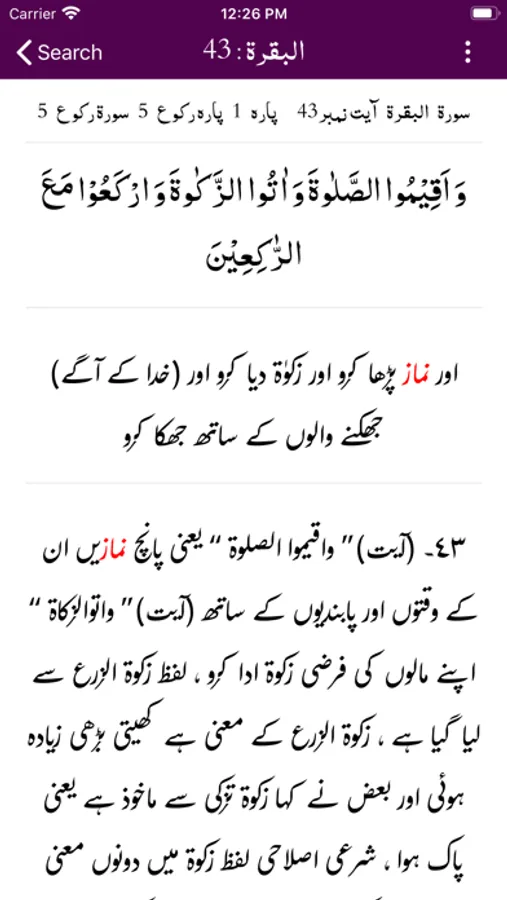 Carrier 12:26 PM
Search البقرة : 43
سورۃ البقرۃ آیت نمبر 43 پارہ 1 پارہ رکوع 5 سورۃ رکوع 5
وَ اَقِیْمُوا الصَّلٰوةَ وَ اٰتُوا الزَّكٰوةَ وَ ارْكَعُوْا مَعَ
الرّٰكِعِیْنَ
اور نماز پڑھا کرو اور زکوٰۃ دیا کرو اور (خدا کے آگے)
جھکنے والوں کے ساتھ جھکا کرو
٤٣۔ (آیت) ” واقیموا الصلوۃ “ یعنی پانچ نمازیں ان
کے وقتوں اور پابندیوں کے ساتھ (آیت) ” واتوالزکاۃ “
اپنے مالوں کی فرضی زکوۃ ادا کرو ، لفظ زکوۃ الزرع سے
لیا گیا ہے ، زکوۃ الزرع کے معنی ہے کھیتی بڑھی زیادہ
ہوئی اور بعض نے کہا زکوۃ تزکی سے ماخوذ ہے یعنی
پاک ہوا ، شرعی اصلاحی لفظ زکوۃ میں دونوں معنی